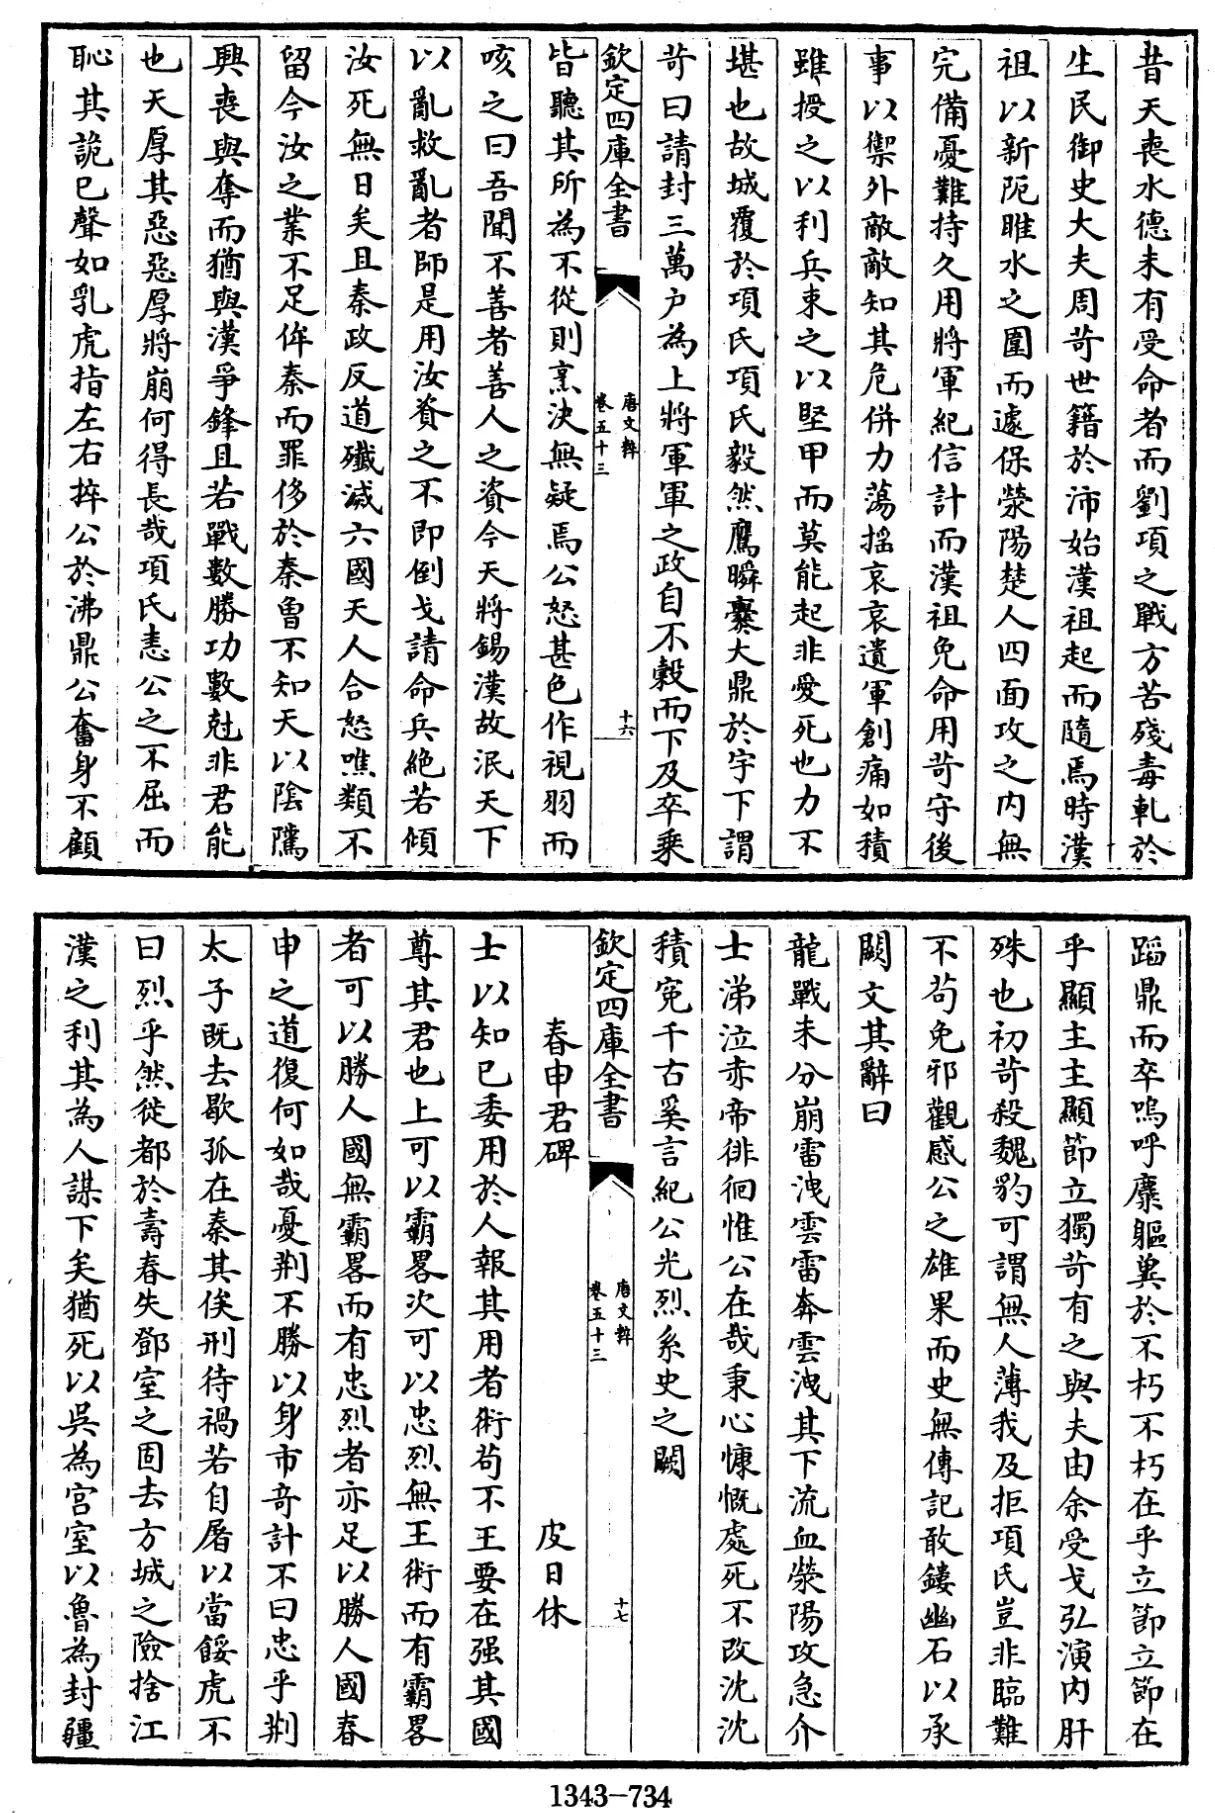 昔天喪水德未有受命者而劉項之戰方苦殘毒軋於
生民御史大夫周苛世籍於沛始漢祖起而隨焉時漢
祖以新阨睢水之圍而遽保滎陽楚人四面攻之内無
完備憂難持久用將軍紀信計而漢祖免命用苛守後
事以禦外敵敵知其危併力蕩揺哀哀遺軍創痛如積
雖授之以利兵束之以堅甲而莫能起非愛死也力不
堪也故城覆於項氏項氏毅然鷹瞬爨大鼎於宇下謂
苛曰請封三萬户為上將軍軍之政自不穀而下及卒乗
欽定四庫全書
唐文粹
卷五十三
十六
皆聽其所為不從則烹決無疑焉公怒甚色作視羽而
咳之曰吾聞不善者善人之資今天將錫漢故泯天下
以亂救亂者師是用汝資之不即倒戈請命兵絶若傾
汝死無日矣且秦政反道殲滅六國天人合怒噍類不
留今汝之業不足侔秦而罪侈於秦曾不知天以陰隲
興喪與奪而猶與漢爭鋒且若戰數勝功數尅非君能
也天厚其惡惡厚將崩何得長哉項氏恚公之不屈而
恥其詭已聲如乳虎指左右捽公於沸鼎公奮身不顧
蹈鼎而卒嗚呼糜軀異於不朽不朽在乎立節立節在
乎顯主主顯節立獨苛有之與夫由余受戈弘演内肝
殊也初苛殺魏豹可謂無人薄我及拒項氏豈非臨難
不苟免邪觀感公之雄果而史無傳記敢鏤幽石以承
闕文其辭曰
龍戰未分崩雷洩雲雷奔雲洩其下流血滎陽攻急介
士涕泣赤帝徘徊惟公在哉秉心慷慨處死不改沈沈
積寃千古奚言紀公光烈系史之闕
欽定四庫全書
唐文粹
卷五十三
十七
春申君碑 皮日休
士以知已委用於人報其用者術苟不王要在强其國
尊其君也上可以霸畧次可以忠烈無王術而有霸畧
者可以勝人國無霸畧而有忠烈者亦足以勝人國春
申之道復何如哉憂荆不勝以身市竒計不曰忠乎荆
太子既去歇孤在秦其俟刑待禍若自屠以當餒虎不
曰烈乎然徙都於壽春失鄧室之固去方城之險捨江
漢之利其為人謀下矣猶死以吳為宫室以魯為封疆
1343-734